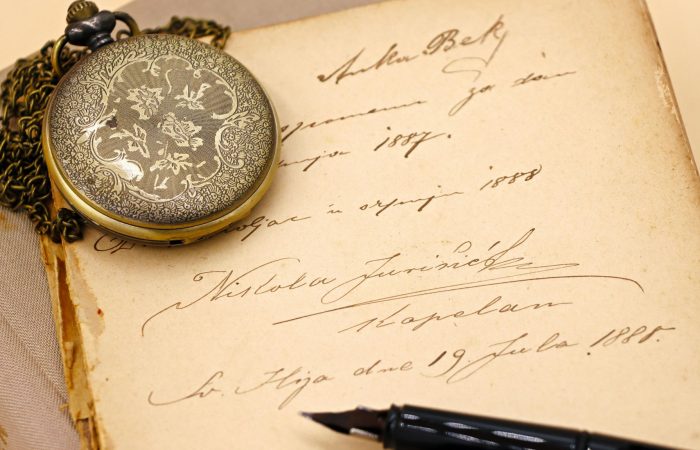 Anka Bek
za dan
1887.
u srpnju 1888
Nikola Jurišić
Kapelan
Sv. Ilija dne 19. Jula 1888.